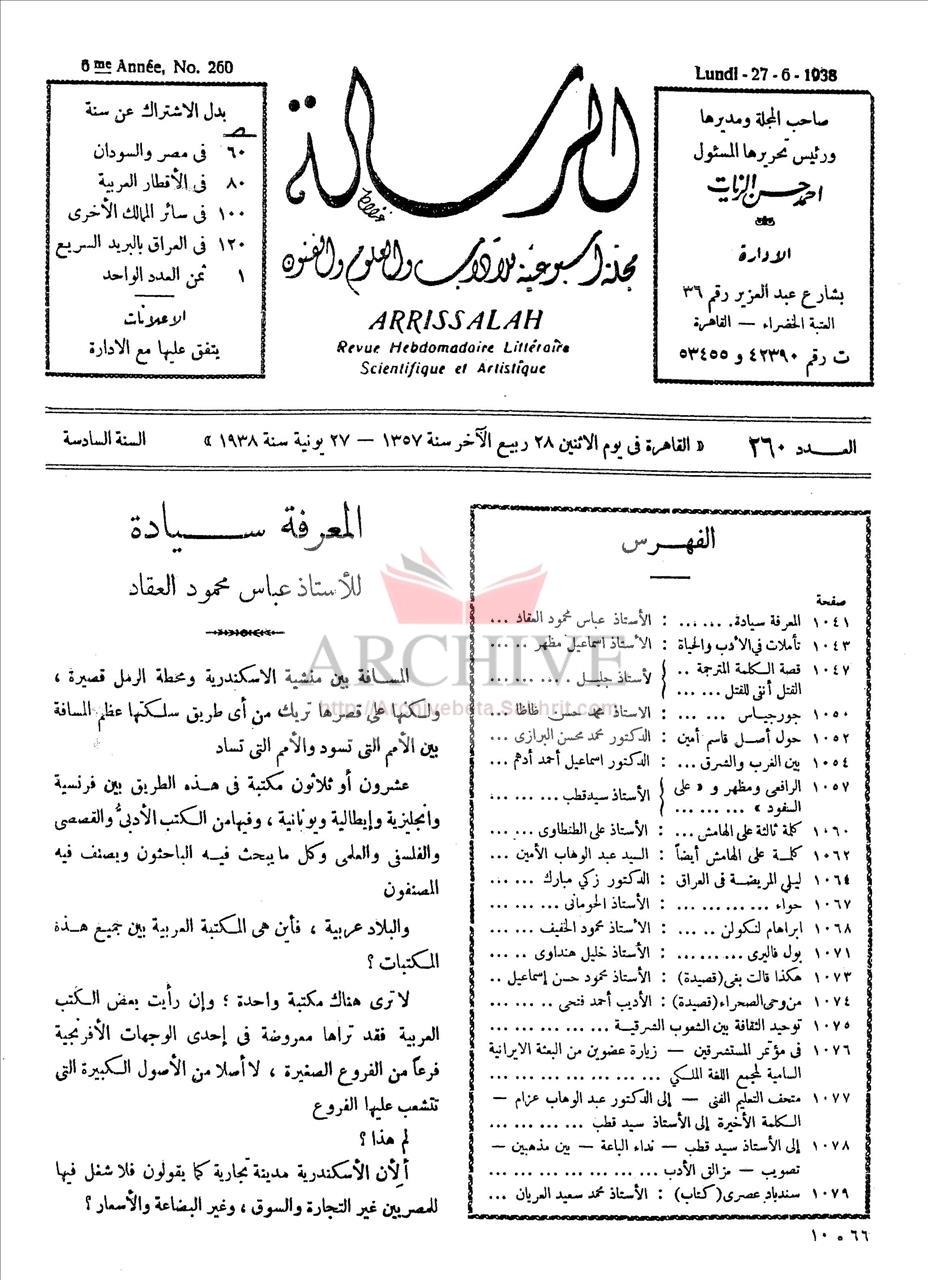 6me Année, No. 260
Lundi - 27 - 6 - 1938
صاحب المجلة ومديرها
ورئيس تحريرها المسئول
احمد حسن الزيات
الادارة
بشارع عبد العزيز رقم ٣٦
العتبة الخضراء — القاهرة
ت رقم ٤٢٣٩٠ و ٥٣٤٥٥
الرسالة
مجلة أسبوعية للآداب والعلوم والفنون
ARRISSALAH
Revue Hebdomadaire Littéraire
Scientifique et Artistique
بدل الاشتراك عن سنة
٦٠ فى مصر والسودان
٨٠ فى الأقطار العربية
١٠٠ فى سائر الممالك الأخرى
١٢٠ فى العراق بالبريد السريع
١ ثمن العدد الواحد
الاعلانات
يتفق عليها مع الادارة
العــدد ٢٦٠
« القاهرة فى يوم الاثنين ٢٨ ربيع الآخر سنة ١٣٥٧ — ٢٧ يونية سنة ١٩٣٨ »
السنة السادسة
الفهـرس
صفحة
١٠٤١ المعرفة سيادة. ... ... : الأستاذ عباس محمود العقاد ...
١٠٤٣ تأملات فى الأدب والحياة : الأستاذ اسماعيل مظهر .. ...
١٠٤٧ قصة الكلمة المترجمة .. القتل أنفى للقتل ... ... : لأستاذ جليل .. ... ... ...
١٠٥٠ جورجياس ... ... : الاستاذ محمد حسن ظاظا ...
١٠٥٢ حول أصل قاسم أمين : الدكتور محمد محسن البرازى ...
١٠٥٤ بين الغرب والشرق ... : الدكتور اسماعيل أحمد أدهم ...
١٠٥٧ الرافعى ومظهر و « على السفود » ... ... ... : الأستاذ سيد قطب ... ... ...
١٠٦٠ كلمة ثالثة على الهامش ... : الأستاذ على الطنطاوى ... ...
١٠٦٢ كلمــة على الهامش أيضاً : السيد عبد الوهاب الأمين ...
١٠٦٤ ليلى المريضة فى العراق : الدكتور زكي مبارك ... ...
١٠٦٧ حواء ... ... ... ... : الأستاذ الحومانى ... ... ...
١٠٦٨ ابراهام لنكولن .. ... : الأستاذ محمود الخفيف ... ...
١٠٧١ بول فاليرى ... ... ... : الأستاذ خليل هنداوى .. ...
١٠٧٣ هكذا قالت بغى (قصيدة) : الأستاذ محمود حسن إسماعيل ..
١٠٧٤ من وحى الصحراء (قصيدة) : الأديب أحمد فتحى .. ... ...
١٠٧٥ توحيد الثقافة بين الشعوب الشرقيـة ... ... ... ... ...
١٠٧٦ فى مؤتمر المستشرقين — زيارة عضوين من البعثة الايرانية
السامية لمجمع اللغة الملكي ... ... ... ... ... ... ...
١٠٧٧ متحف التعليم الفنى — إلى الدكتور عبد الوهاب عزام —
الـكلمة الأخيرة إلى الأستاذ سيد قطب ... ... ... ...
١٠٧٨ إلى الأستاذ سيد قطب — نداء الباعة — بين مذهبين —
تصويب — مزالق الأدب ... ... ... ... ... ... ...
١٠٧٩ سندباد عصرى (كتاب) : الأستاذ محمد سعيد العريان ...
المعرفة ســـيادة
للأستاذ عباس محمود العقاد
المسافة بين منشية الاسكندرية ومحطة الرمل قصيرة ،
ولكنها على قصرها تريك من أى طريق سلكتها عظم المسافة
بين الأمم التى تسود والأمم التى تساد
عشرون أو ثلاثون مكتبة فى هـذه الطريق بين فرنسية
وانجليزية وإيطالية ويونانية ، وفيها من الكتب الأدبىُّ والقصصى
والفلسفى والعلمى وكل ما يبحث فيـه الباحثون ويصنف فيه
المصنفون
والبلاد عربية ، فأين هى المكتبة العربية بين جميع هـذه
المكتبات ؟
لا ترى هناك مكتبة واحدة ؛ وإن رأيت بعض الكتب
العربية فقد تراها معروضة فى إحدى الوجهات الأفرنجية
فرعاً من الفروع الصغيرة ، لا أصلا من الأصول الكبيرة التى
تتشعب عليها الفروع
لم هذا ؟
ألأن الأسكندرية مدينة تجارية كما يقولون فلا شغل فيها
للمصريين غير التجارة والسوق ، وغير البضاعة والأسعار ؟
ARCHIVE
http://Archivebeta.Sakhrit.com
٦٦ ٥ ١٠